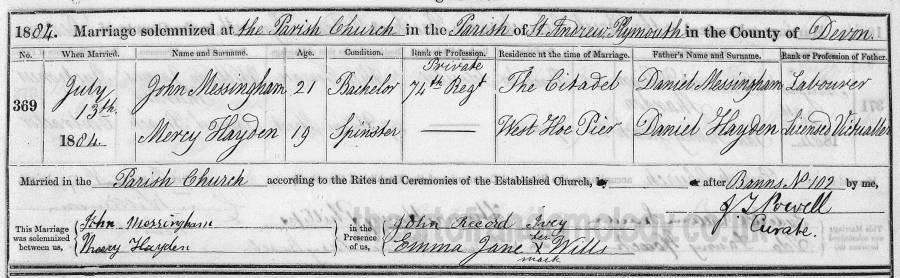 1884. Marriage solemnized at the Parish Church in the Parish of St. Andrew Plymouth in the County of Devon.
No. When Married. Name and Surname. Age. Condition. Rank or Profession. Residence at the time of Marriage. Father's Name and Surname. Rank or Profession of Father.
369 July 13th. 1884. John Messingham 21 Bachelor Private 74th Regt The Citadel Daniel Messingham Labourer
Mercy Hayden 19 Spinster West Hoe Pier Daniel Hayden Licensed Victualler
Married in the Parish Church according to the Rites and Ceremonies of the Established Church, by or after Banns No 102 by me,
Powell
Curate.
This Marriage was solemnized between us, John Messingham
Mercy Hayden
in the Presence of us, John Record Ivey
Emma Jane X Wills
her
mark